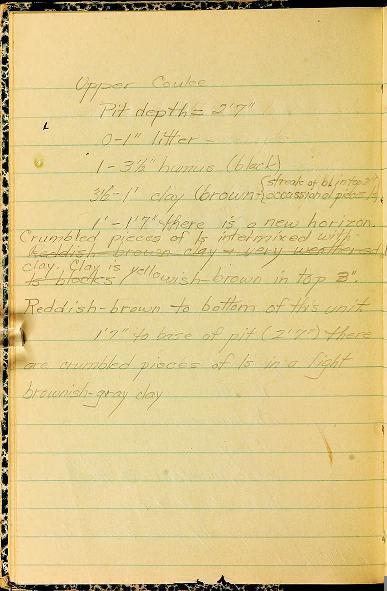 Upper Coulee
Pit depth = 2'7"
0-1" litter -
1 - 3½" humus (black)
3½ - 1' clay (brown- {streak of bl in top 3"
occassional piece ls
1' - 1'7" there is a new horizon.
Crumbled pieces of ls intermixed with
Reddish-brown clay + very weathered
clay. Clay is yellowish-brown in top 3".
ls blocks
Reddish-brown to bottom of this unit
1'7" to base of pit (2'7") there
are crumbled pieces of ls in a light
brownish-gray clay